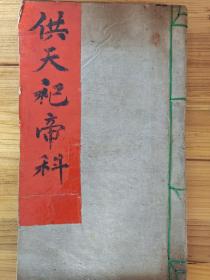 供天祀帝科